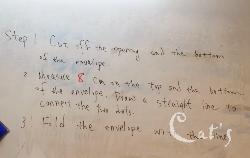 Step 1 Cut off the opening and the bottom
of the envelope.
2 Measure 8 cm on the top and the bottom
of the envelope. Draw a straight line to
connect the two dots.
3! Fold the envelope with the line
Cat's